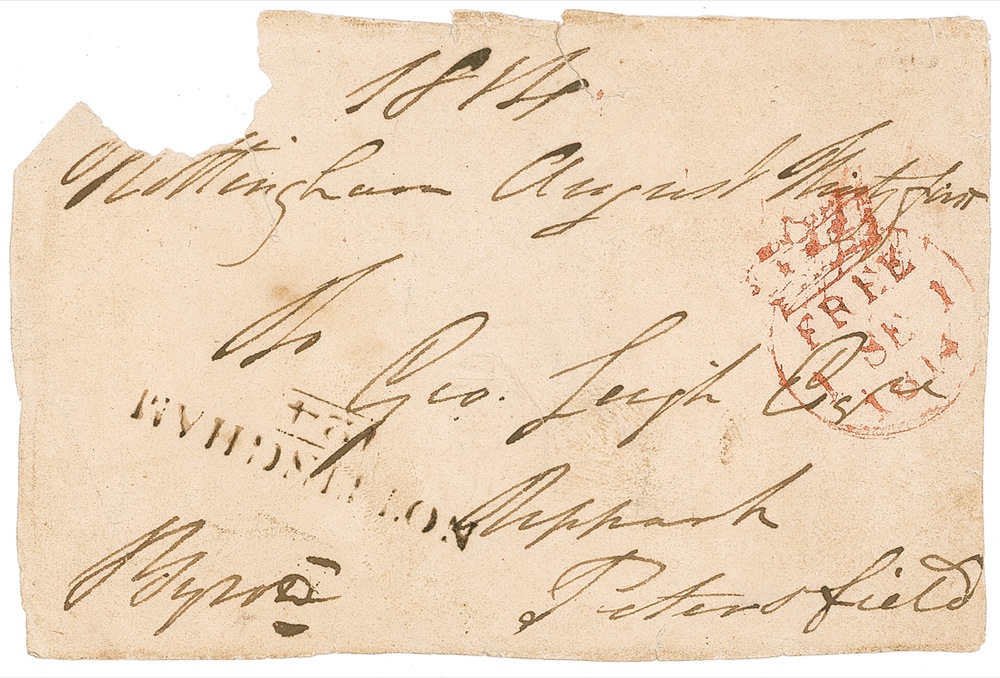 1814
Nottingham August Thirty first
To
Geo. Leigh Esqre
Uppark
Petersfield
Byron
FREE
1 SE 1
1814
NOTTINGHAM
124